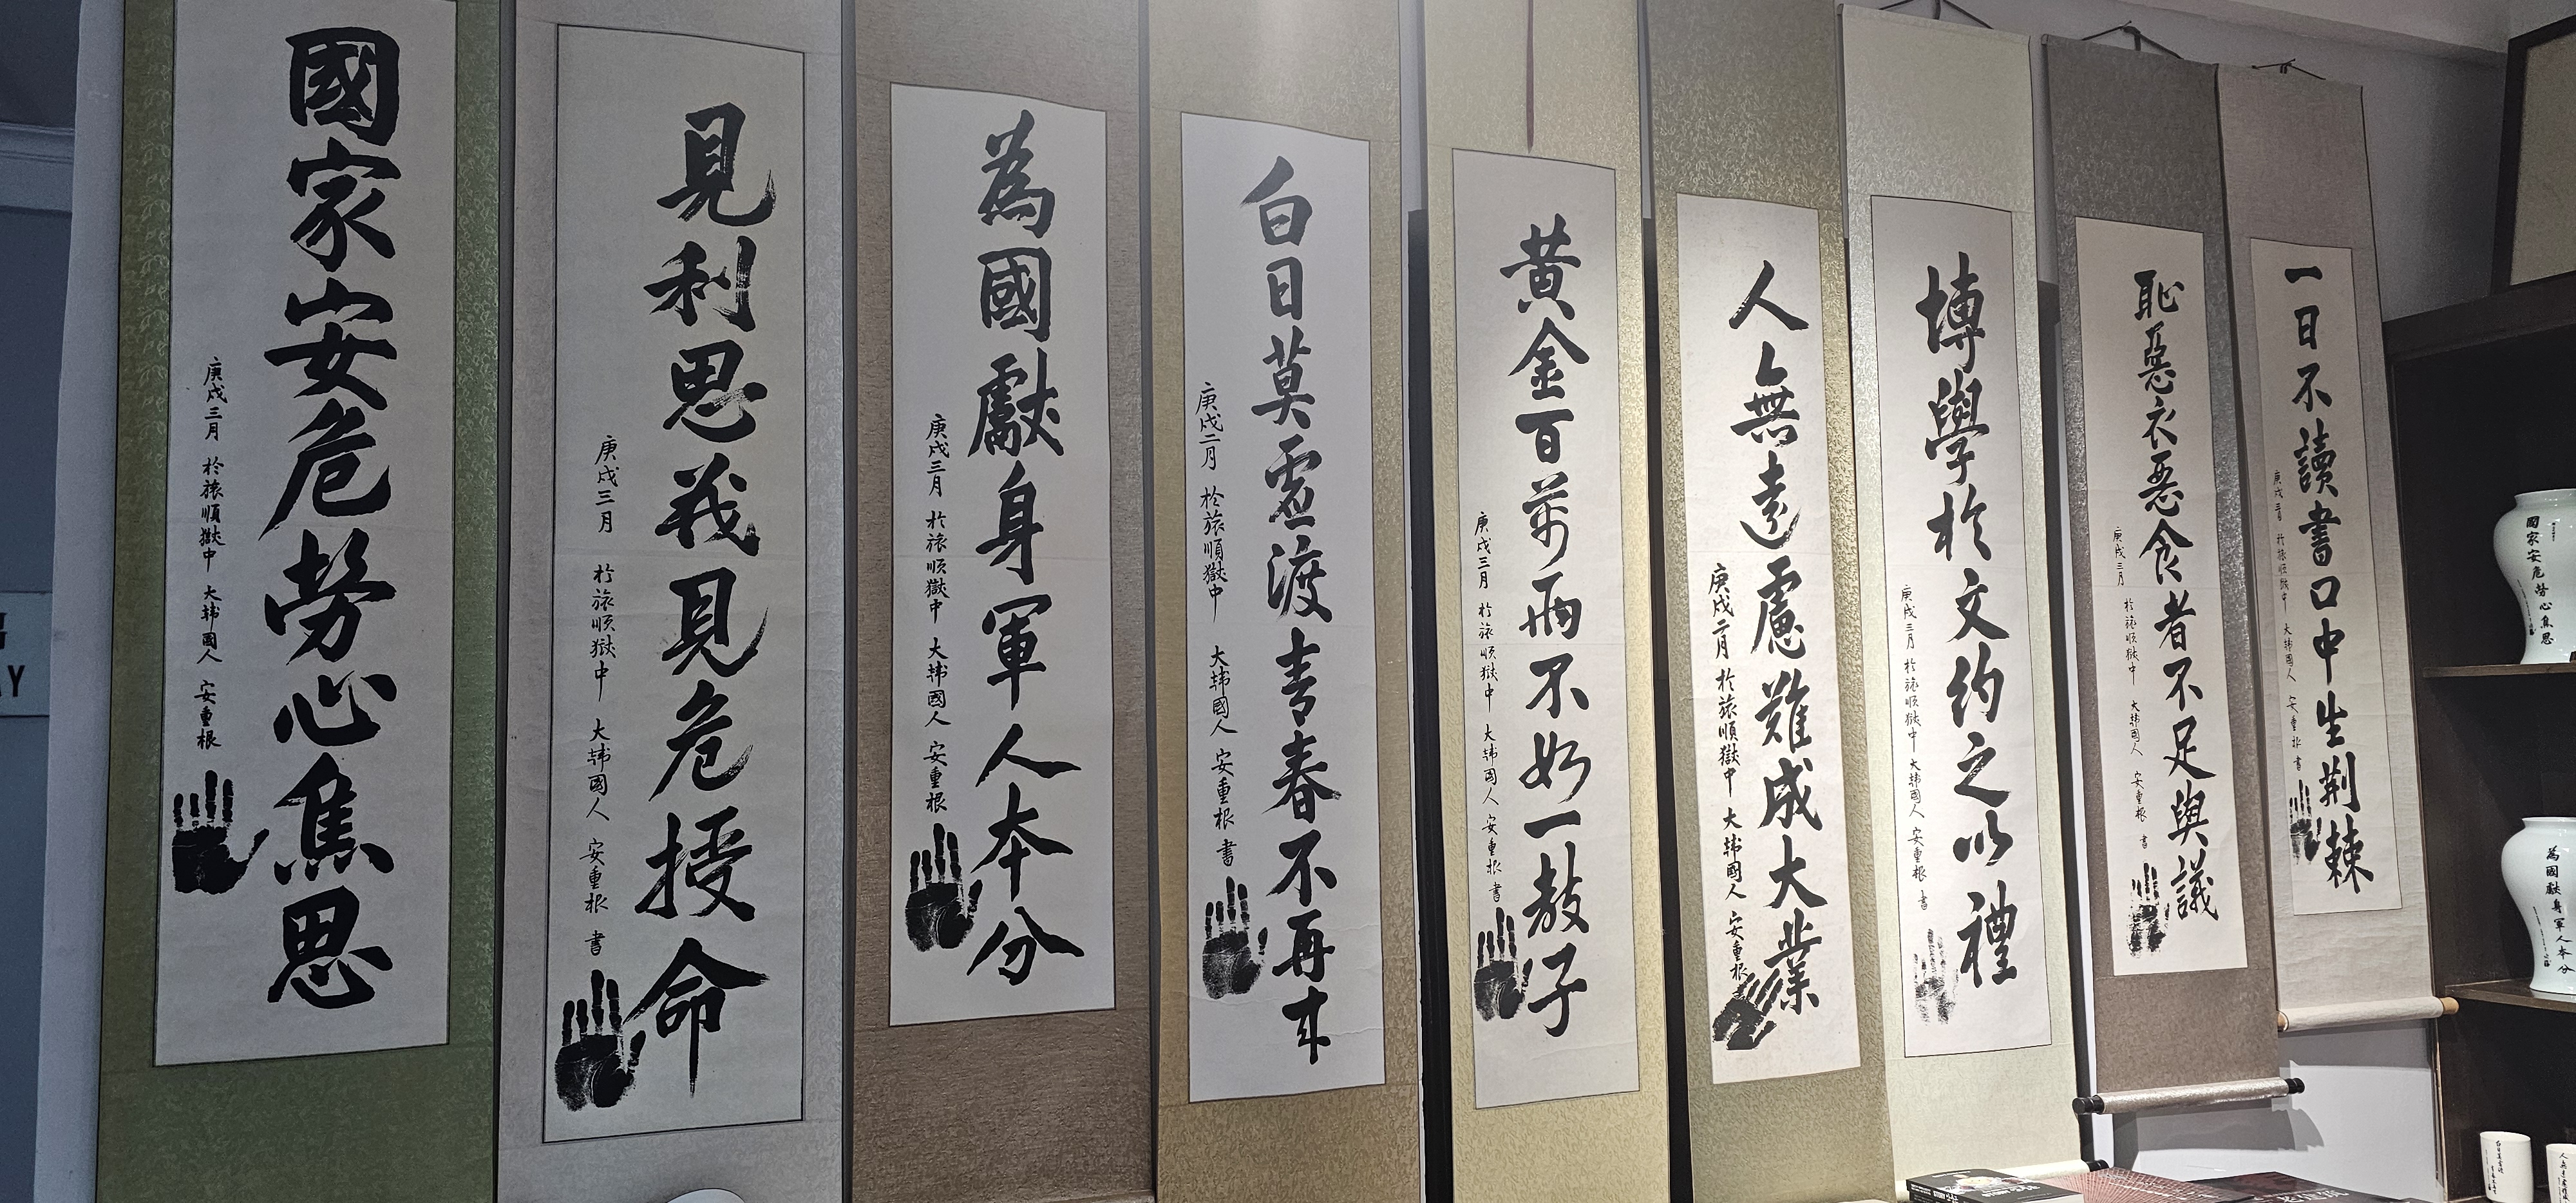 國家安危勞心焦思
庚戌三月 於旅順獄中 大韓國人 安重根
見利思義見危授命
庚戌三月 於旅順獄中 大韓國人 安重根 書
為國獻身軍人本分
庚戌三月 於旅順獄中 大韓國人 安重根
白日莫虛渡青春不再来
庚戌二月 於旅順獄中 大韓國人 安重根 書
黃金百萬両不如一敎子
庚戌三月 於旅順獄中 大韓國人 安重根 書
人無遠慮難成大業
庚戌二月 於旅順獄中 大韓國人 安重根
博學於文約之以禮
庚戌三月 於旅順獄中 大韓國人 安重根 書
恥惡衣惡食者不足與議
庚戌三月 於旅順獄中 大韓國人 安重根 書
一日不讀書口中生荆棘
庚戌三月 於旅順獄中 大韓國人 安重根 書
國家安危勞心焦思
為國獻身軍人本分
AY